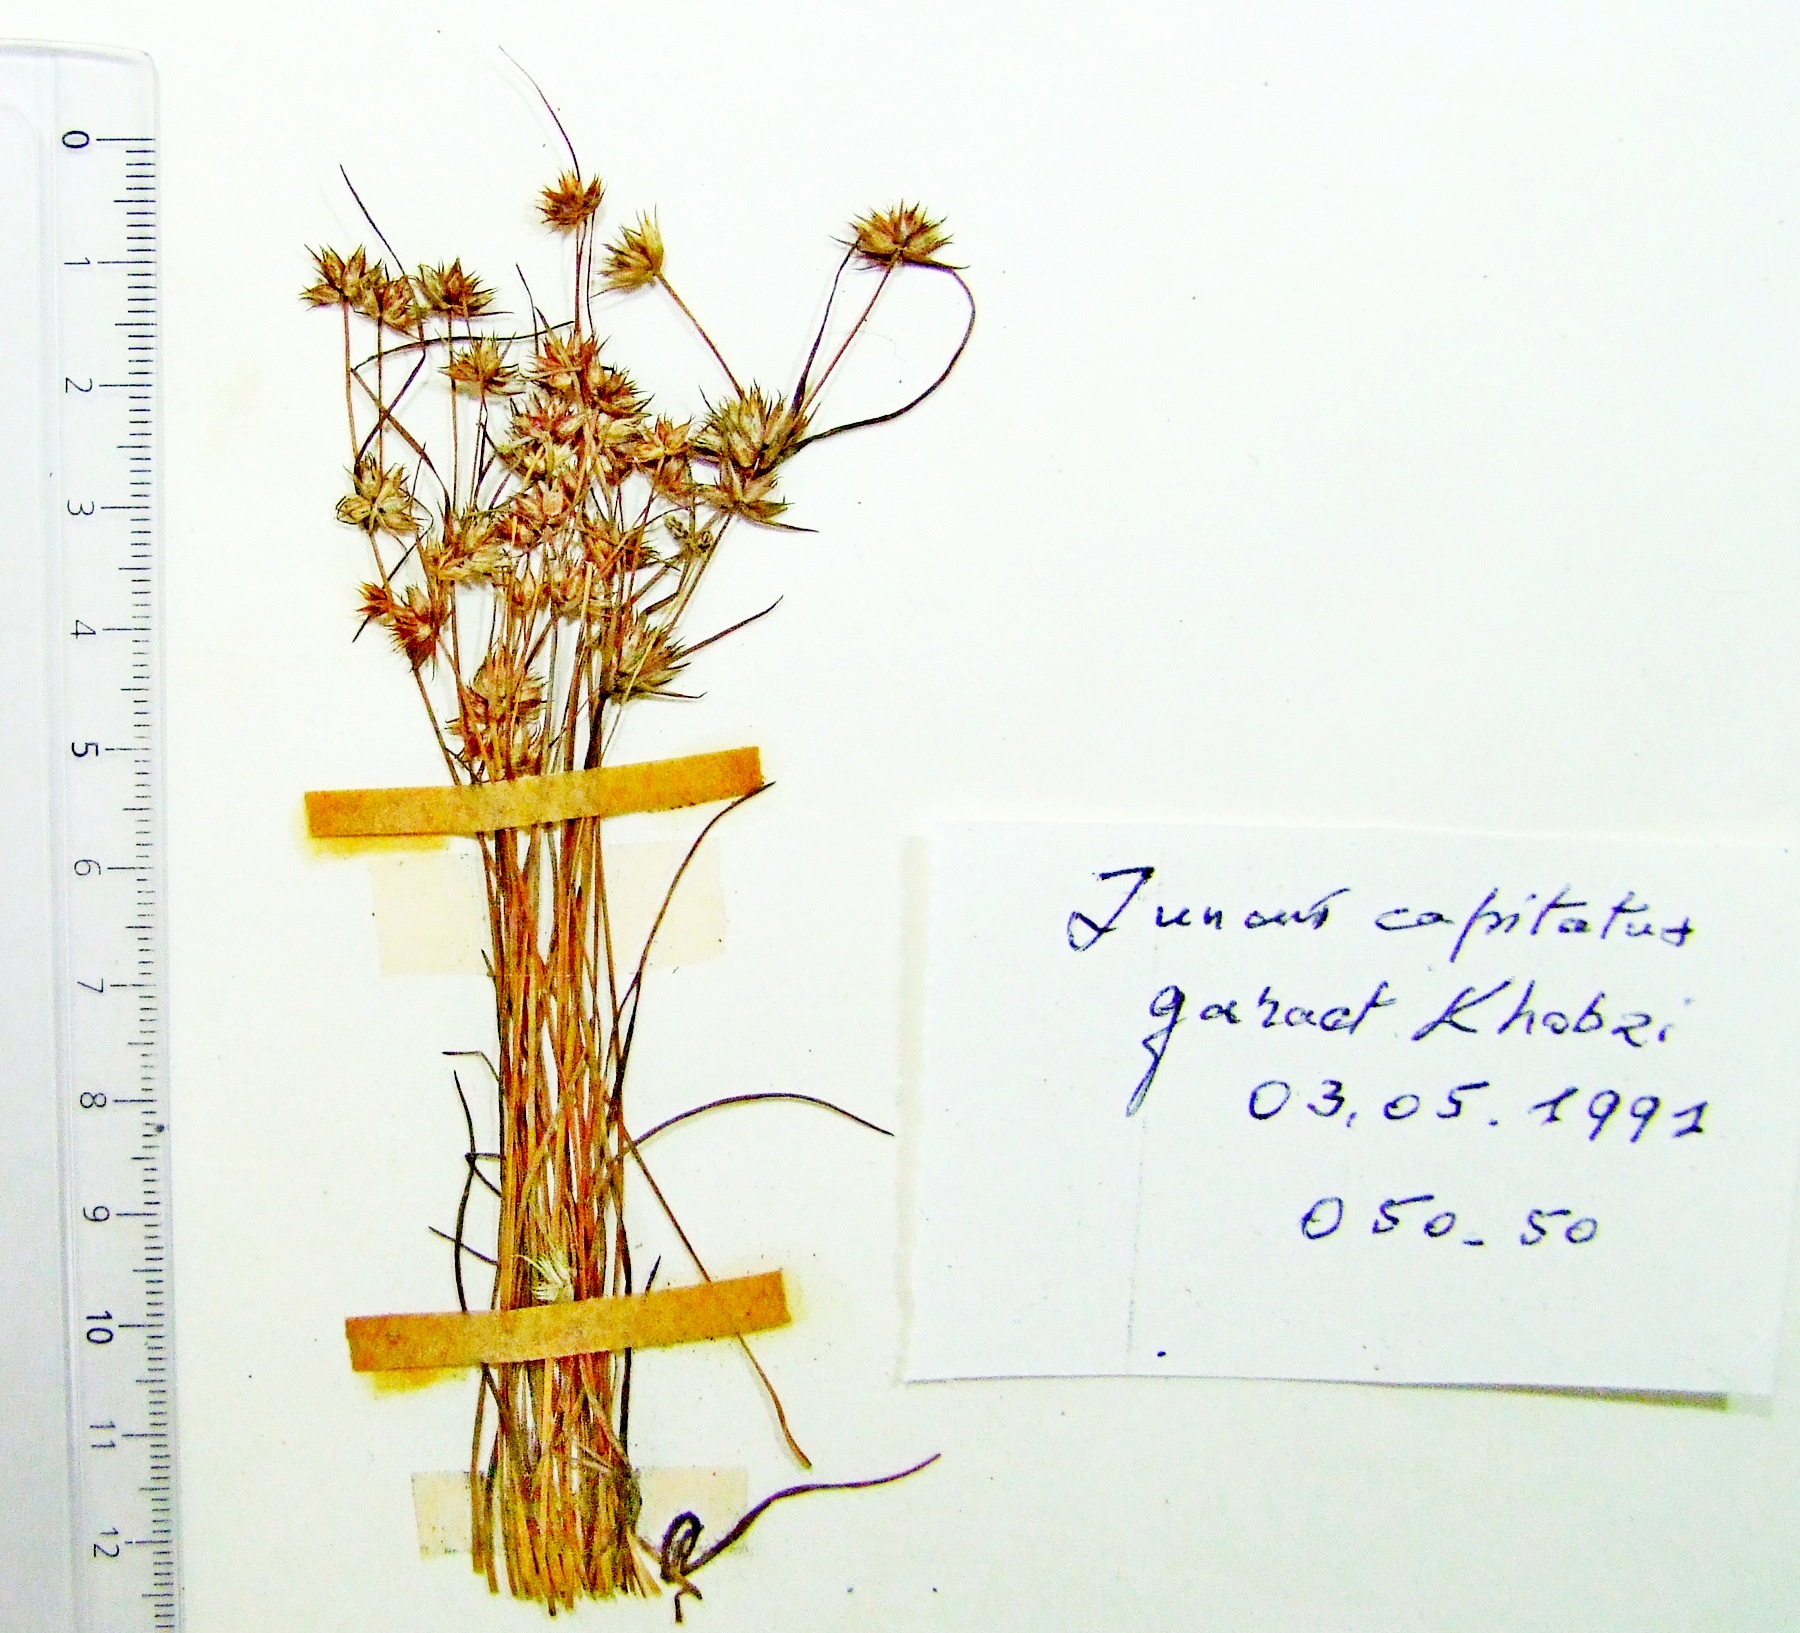 0
1
2
3
4
5
6
7
8
9
10
11
12
Juncus capitatus
garaet Khobzi
03.05.1991
050-50